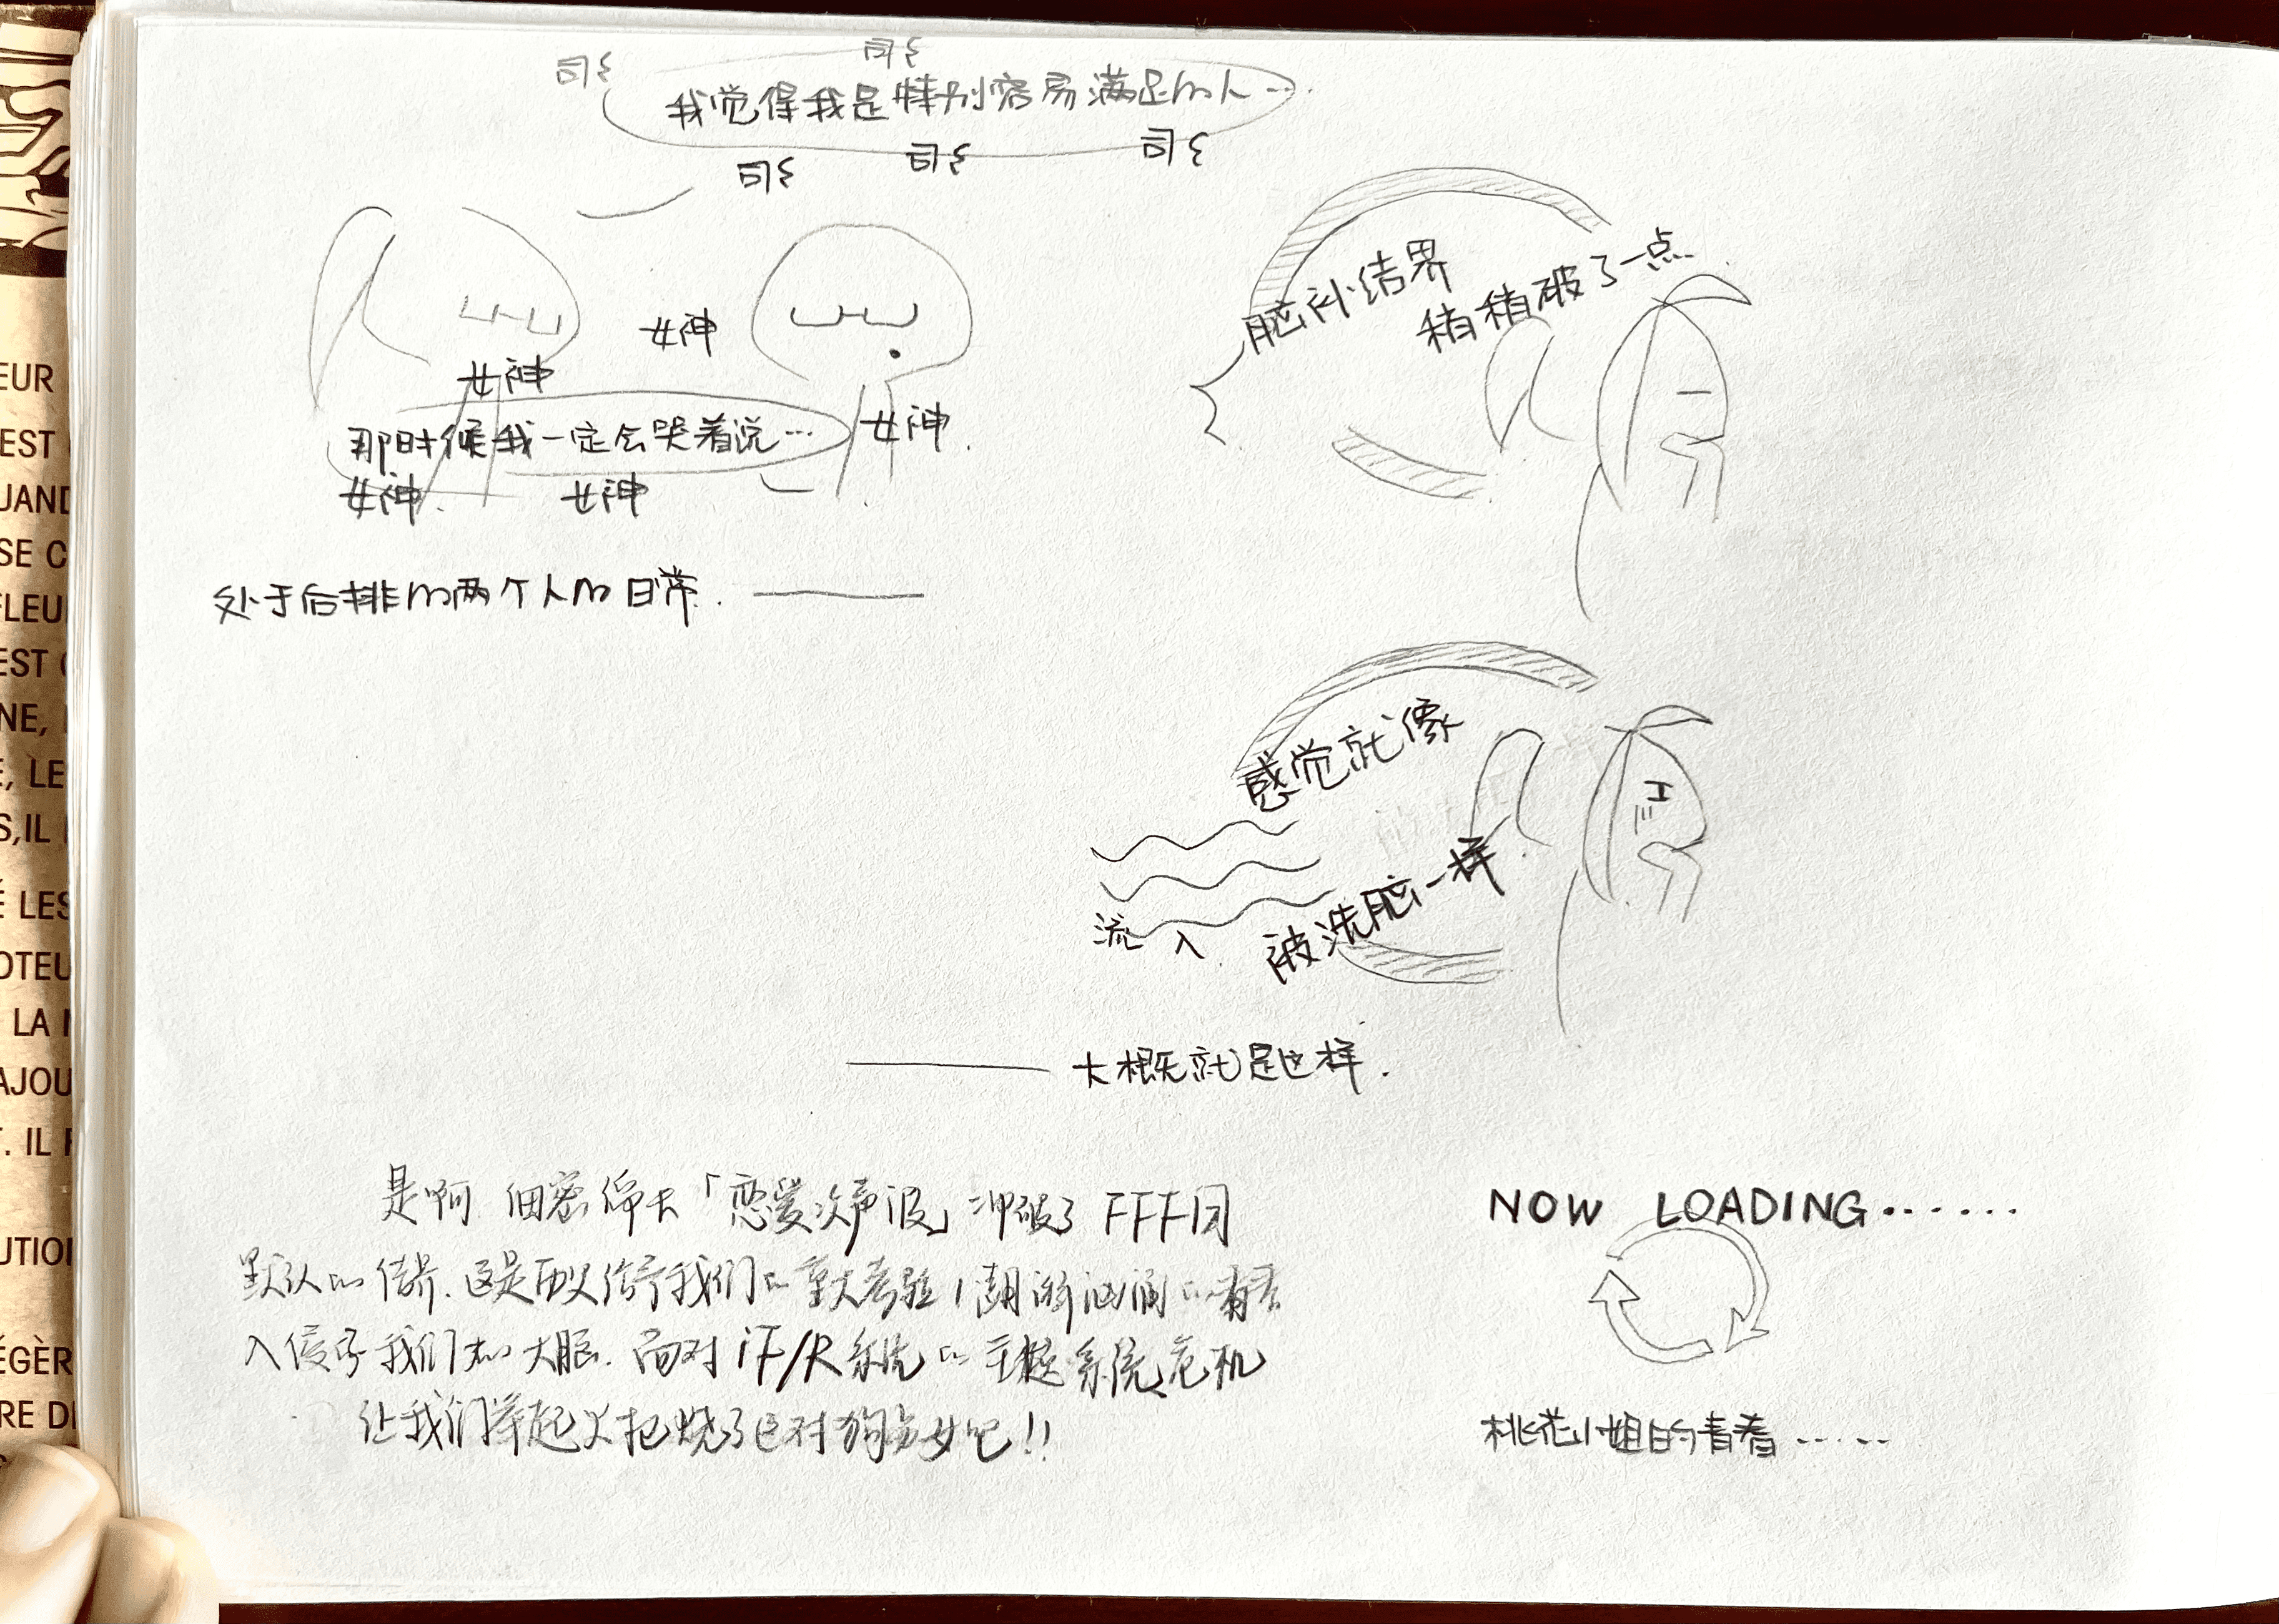 司 司
我觉得我是特别容易满足的人…
司 司 司
女神
女神
那时候我一定会哭着说…
女神
女神 女神
处于后排的两个人的日常. ——
脑补结界
稍稍破了一点
感觉就像
流入
被洗脑一样
—— 大概就是这样.
是啊 「恋爱次声波」冲破了FFF团
默认的 这是 给予我们的重大考验
入侵了我们的大脑. 面对 iF/R系统的主 系统危机
让我们举起火把烧了这对狗男女吧!!
NOW LOADING......
桃花小姐的青春.....
EUR
EST
UAND
SE C
FLEU
EST
NE,
E, LE
S, IL
LES
OTEU
LA
AJOU
. IL
UTION
ÉGÈR
RE D